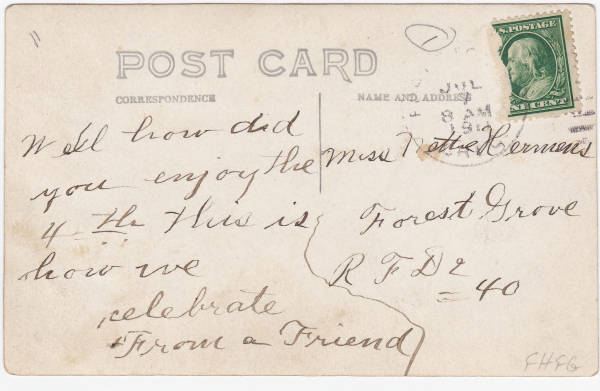 POST CARD
CORRESPONDENCE
NAME AND ADDRESS
U.S. POSTAGE
ONE CENT
JUL
7
8 AM
191
Well how did
you enjoy the
4 th This is
how we
celebrate
From a Friend
Miss Nettie Hermens
Forest Grove
R F D 2
= 40
FHFG
1